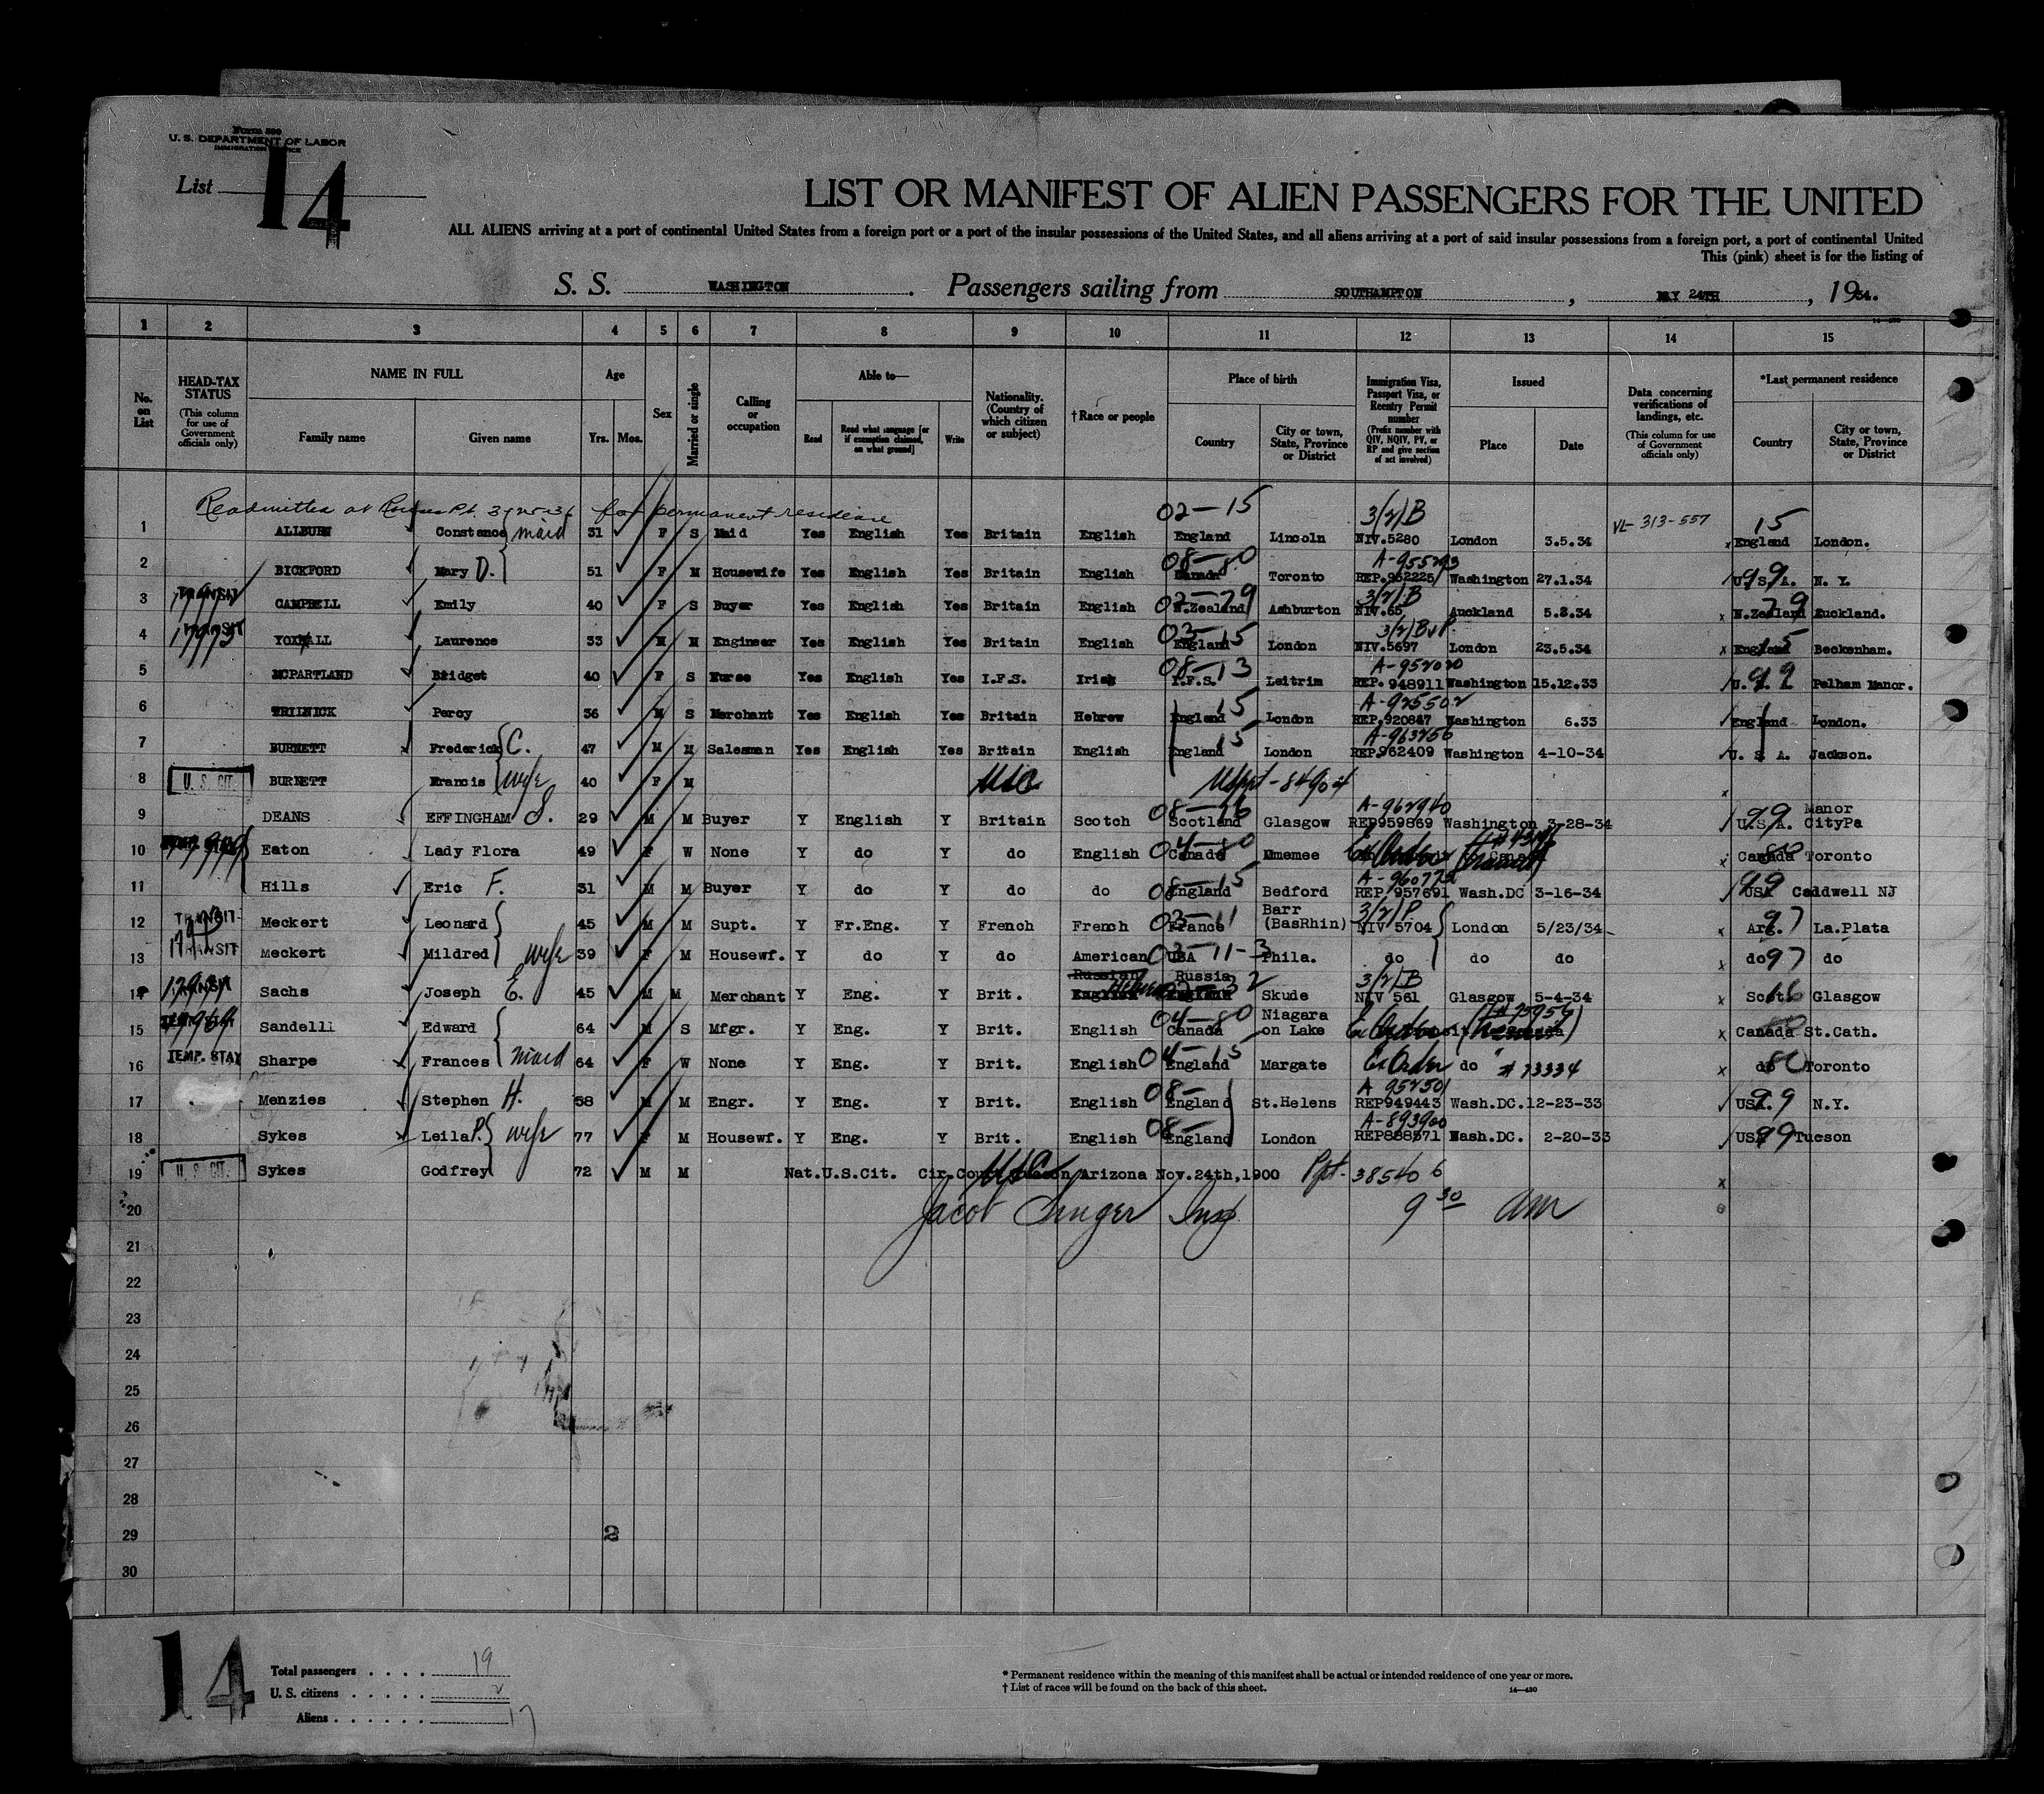 Form 500
U. S. DEPARTMENT OF LABOR
IMMIGRATION SERVICE
List 14
LIST OR MANIFEST OF ALIEN PASSENGERS FOR THE UNITED
ALL ALIENS arriving at a port of continental United States from a foreign port or a port of the insular possessions of the United States, and all aliens arriving at a port of said insular possessions from a foreign port, a port of continental United
This (pink) sheet is for the listing of
S. S. WASHINGTON. Passengers sailing from SOUTHAMPTON, MAY 24TH, 1934.
1 2 3 4 5 6 7 8 9 10 11 12 13 14 15
No. on List
HEAD-TAX STATUS (This column for use of Government officials only)
NAME IN FULL Family name Given name
Age Yrs. Mos.
Sex
Married or single
Calling or occupation
Able to— Read Read what language [or if exemption claimed, on what ground] Write
Nationality. (Country of which citizen or subject)
† Race or people
Place of birth Country City or town, State, Province or District
Immigration Visa, Passport Visa, or Reentry Permit number (Prefix number with QIV, NQIV, PV, or RP and give section of act involved)
Issued Place Date
Data concerning verifications of landings, etc. (This column for use of Government officials only)
*Last permanent residence Country City or town, State, Province or District
Readmitted at Rouses Pt. for permanent residence
02-15 3/2/B VL-313-557 15
1 ALLBURN Constance maid 31 F S Maid Yes English Yes Britain English England Lincoln NIV.5280 London 3.5.34 x England London.
08-80 A-955293 99
2 BICKFORD Mary D. 51 F M Housewife Yes English Yes Britain English Canada Toronto REP.952225 Washington 27.1.34 U.S.A. N. Y.
TRANSIT 02-79 3/2/B 79
3 CAMPBELL Emily 40 F S Buyer Yes English Yes Britain English N.Zealand Ashburton NIV.65 Auckland 5.3.34 x N.Zealand Auckland.
TRANSIT 03-15 3/2/B 15
4 YOXALL Laurence 33 M M Engineer Yes English Yes Britain English England London NIV.5697 London 23.5.34 x England Beckenham.
08-13 A-952020 99
5 MCPARTLAND Bridget 40 F S Nurse Yes English Yes I.F.S. Irish I.F.S. Leitrim REP. 948911 Washington 15.12.33 U.S.A. Pelham Manor.
15 A-925502
6 TRILNICK Percy 36 M S Merchant Yes English Yes Britain Hebrew England London REP.920847 Washington 6.33 England London.
15 A-963256
7 BURNETT Frederick C. 47 M M Salesman Yes English Yes Britain English England London REP.962409 Washington 4-10-34 U. S A. Jackson.
8 U. S. CIT. BURNETT Francis wife 40 F M USC USppt-84904 x
08-16 A-962940 99 Manor
9 DEANS EFFINGHAM S. 29 M M Buyer Y English Y Britain Scotch Scotland Glasgow REP959869 Washington 3-28-34 U.S.A. CityPa
04-80 80
10 Eaton Lady Flora 49 F W None Y do Y do English Canada Mmemee Ex Order x Canada Toronto
08-15 A-960772 99
11 Hills Eric F. 31 M M Buyer Y do Y do do England Bedford REP 957691 Wash.DC 3-16-34 USA Caldwell NJ
TRANSIT 03-11 Barr 3/2/P 97
12 Meckert Leonard 45 M M Supt. Y Fr.Eng. Y French French France (BasRhin) NIV 5704 London 5/23/34 x Arg. La.Plata
TRANSIT 03-11-3 97
13 Meckert Mildred wife 39 F M Housewf. Y do Y do American USA Phila. do do do x do do
TRANSIT Russian Hebrew Russia 32 3/2/B 16
14 Sachs Joseph E. 45 M M Merchant Y Eng. Y Brit. English England Skude NIV 561 Glasgow 5-4-34 x Scot. Glasgow
TEMP. STAY 04-80 Niagara
15 Sandelll Edward 64 M S Mfgr. Y Eng. Y Brit. English Canada on Lake Ex Order x Canada St.Cath.
TEMP. STAY 04-15 80
16 Sharpe Frances maid 64 F W None Y Eng. Y Brit. English England Margate Ex Order do #73334 x do Toronto
08- A 952501 99
17 Menzies Stephen H. 58 M M Engr. Y Eng. Y Brit. English England St.Helens REP949443 Wash.DC. 12-23-33 USA. N.Y.
08- A-893900 99
18 Sykes Leila P. wife 77 F M Housewf. Y Eng. Y Brit. English England London REP888571 Wash.DC. 2-20-33 USA Tucson
19 U. S. CIT. Sykes Godfrey 72 M M Nat.U.S.Cit. Cir.Court Tucson Arizona Nov.24th,1900 USC Ppt-385406 x
20 Jacob Singer Insp 9 30 am
21
22
23
24
25
26
27
28
29 2
30
14
Total passengers . . . . 19
U. S. citizens . . . . . 2
Aliens . . . . . . 17
* Permanent residence within the meaning of this manifest shall be actual or intended residence of one year or more.
† List of races will be found on the back of this sheet. 14—430